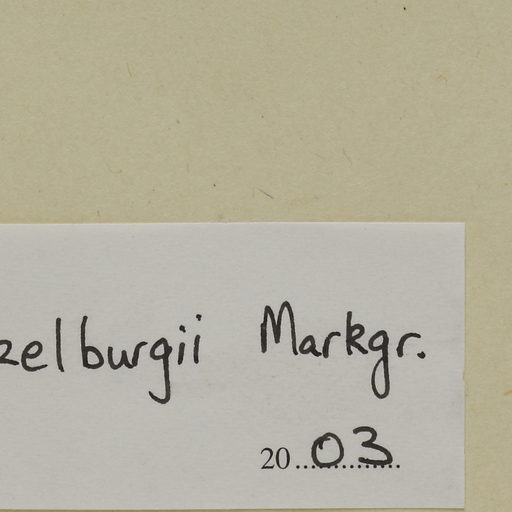 zelburgii Markgr.
20 03